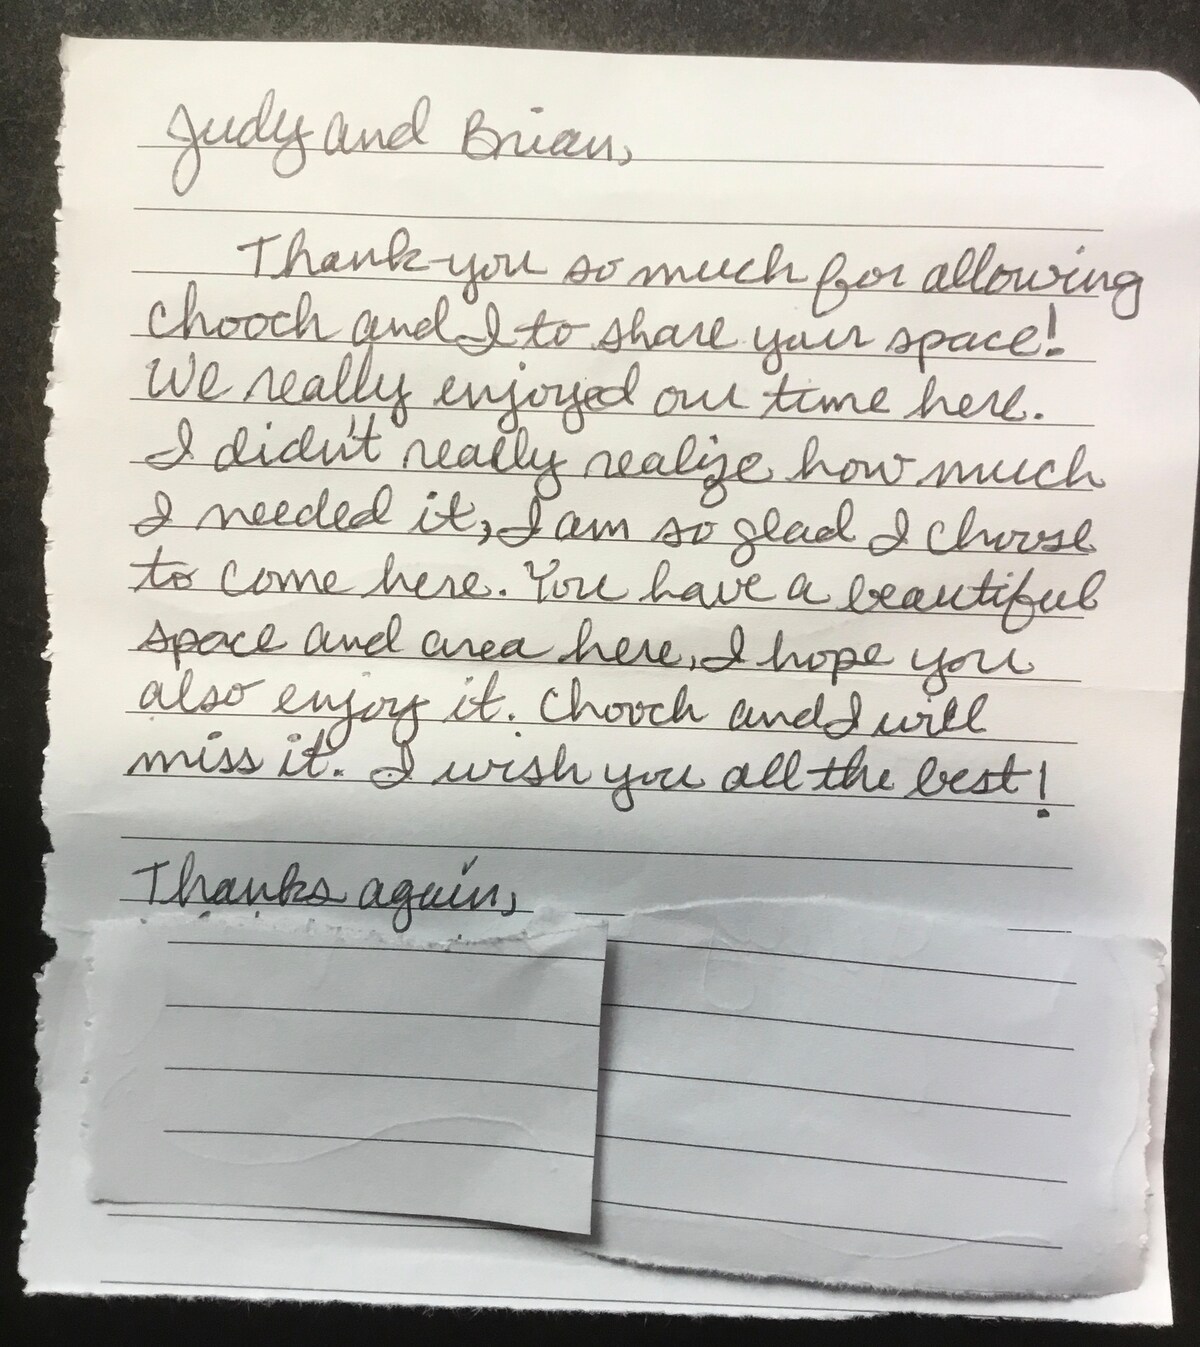 Judy and Brian,
Thank you so much for allowing
chooch and I to share your space!
We really enjoyed our time here.
I didn't really realize how much
I needed it, I am so glad I choose
to come here. You have a beautiful
space and area here, I hope you
also enjoy it. Chooch and I will
miss it. I wish you all the best!
Thanks again,